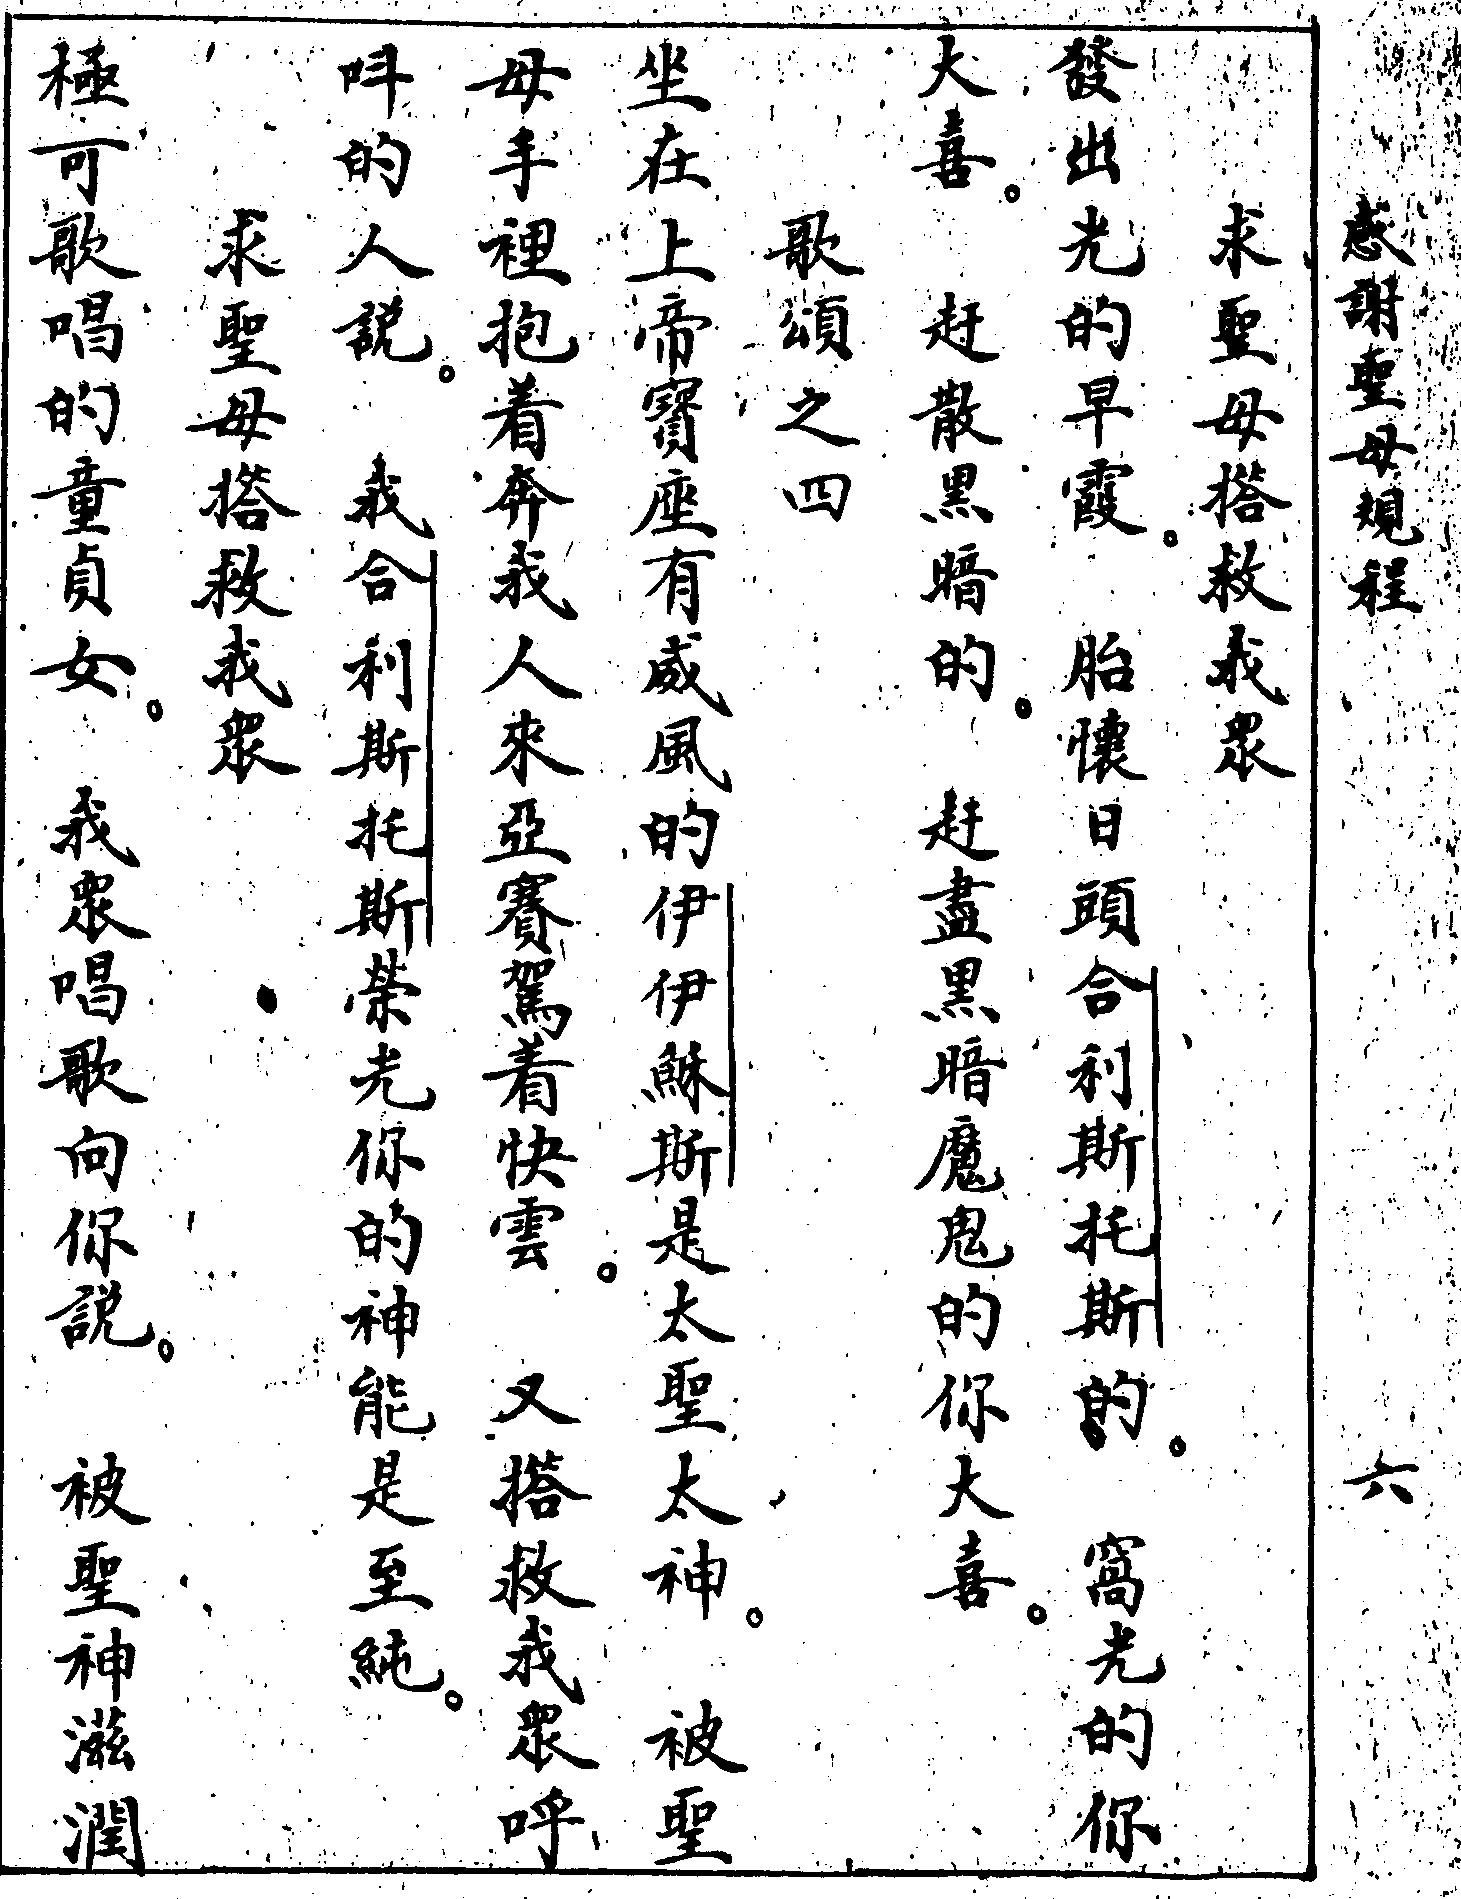 感謝聖母規程 六
求聖母搭救我眾
發出光的早霞。胎懷日頭合利斯托斯的。窩光的你
大喜。赶散黑暗的。赶盡黑暗魔鬼的你大喜。
歌頌之四
坐在上帝寶座有威風的伊伊穌斯是太聖太神。被聖
母手裡抱着奔我人來亞賽駕着快雲。又搭救我眾呼
呌的人説。我合利斯托斯榮光你的神能是至純。
求聖母搭救我眾
極可歌唱的童貞女。我眾唱歌向你説。被聖神滋潤